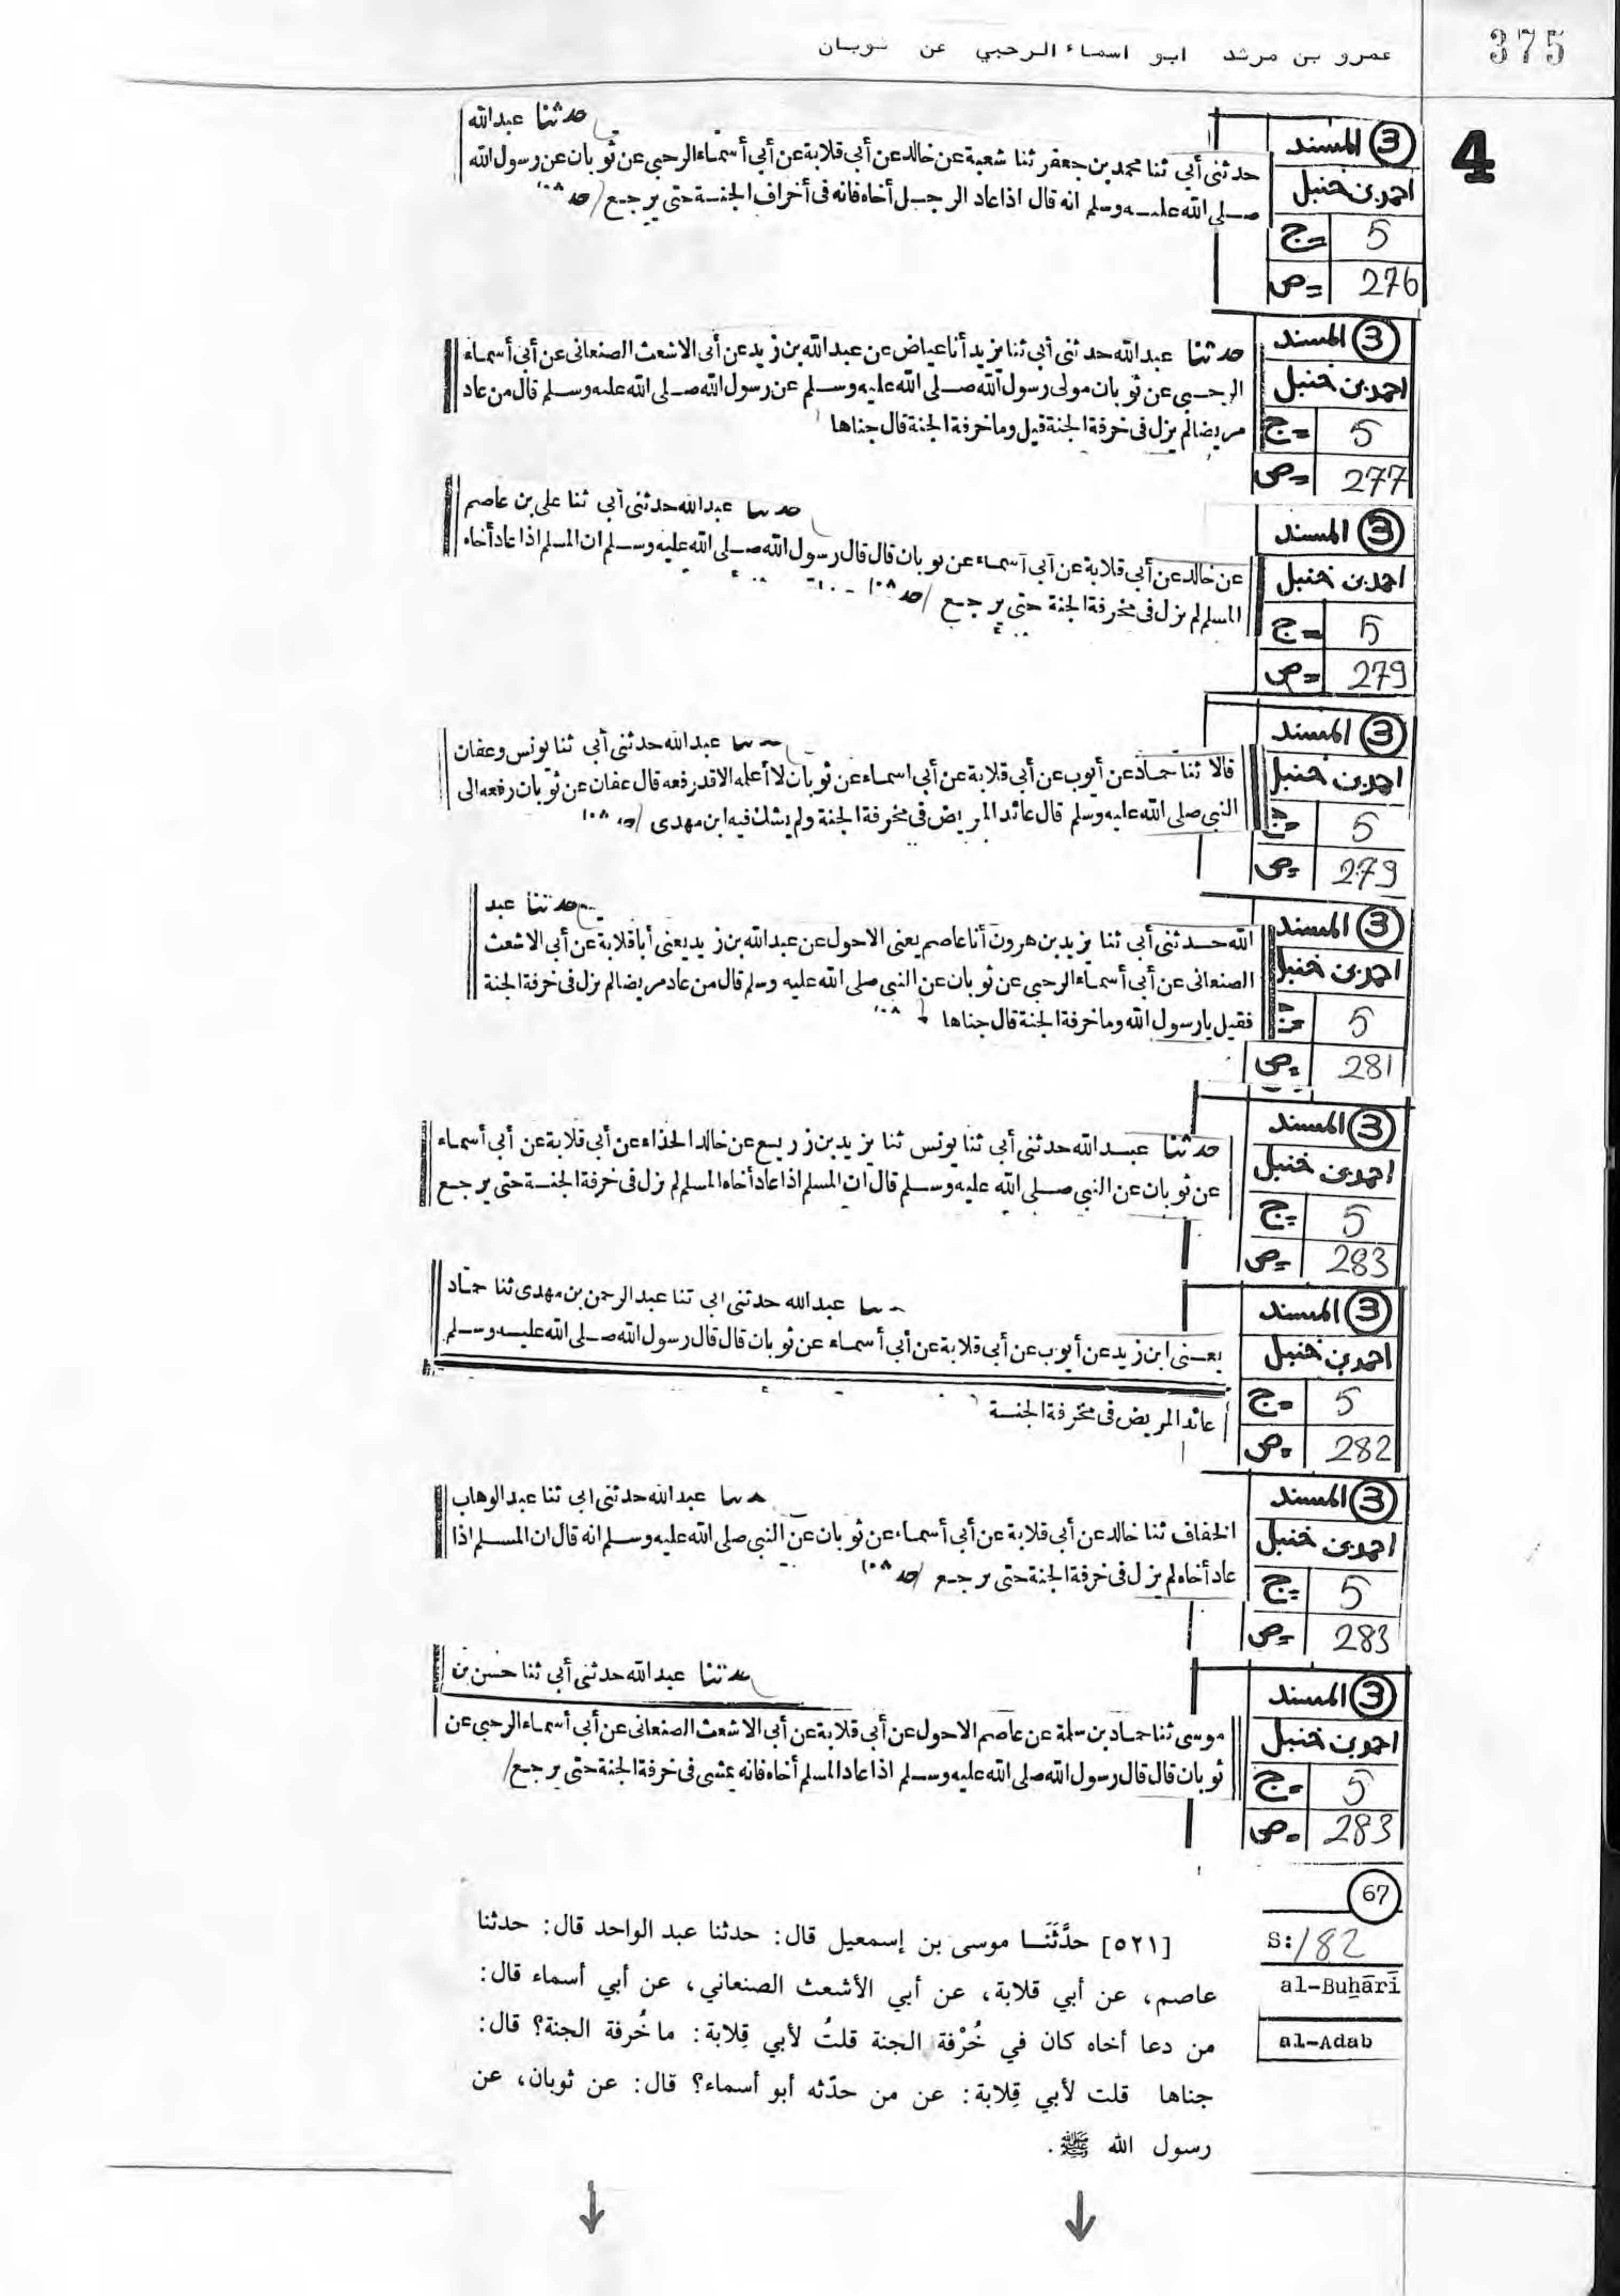 375
عمرو بن مرشد ابو اسماء الرحبي عن ثوبان
4
3 المسند
احمد بن حنبل
ج= 5
ص= 276
حدثنا عبدالله
حدثني أبي ثنا محمد بن جعفر ثنا شعبة عن خالد عن أبي قلابة عن أبي أسماء الرحبي عن ثوبان عن رسول الله
صلى الله عليه وسلم انه قال اذا عاد الرجل أخاه فانه فى أخراف الجنة حتى يرجع
3 المسند
احمد بن حنبل
ج= 5
ص= 277
حدثنا عبد الله حدثنى أبى ثنا يزيد أنا عياض عن عبد الله بن زيد عن أبى الاشعث الصنعانى عن أبى أسماء
الرحبى عن ثوبان مولى رسول الله صلى الله عليه وسلم عن رسول الله صلى الله عليه وسلم قال من عاد
مريضا لم يزل فى خرفة الجنة قيل وما خرفة الجنة قال جناها
3 المسند
احمد بن حنبل
ج= 5
ص= 279
عبد الله حدثنى أبى ثنا على بن عاصم
عن خالد عن أبى قلابة عن أبى أسماء عن ثوبان قال قال رسول الله صلى الله عليه وسلم ان المسلم اذا عاد أخاه
المسلم لم يزل فى مخرفة الجنة حتى يرجع
3 المسند
احمد بن حنبل
ج= 5
ص= 279
عبد الله حدثنى أبى ثنا يونس وعفان
قالا ثنا حماد عن أيوب عن أبى قلابة عن أبى اسماء عن ثوبان لا أعلمه الا قد رفعه قال عفان عن ثوبان رفعه الى
النبى صلى الله عليه وسلم قال عائد المريض فى مخرفة الجنة ولم يشك فيه ابن مهدى
3 المسند
احمد بن حنبل
ج= 5
ص= 281
حدثنا عبد
الله حدثنى أبى ثنا يزيد بن هرون أنا عاصم يعنى الاحول عن عبد الله بن زيد يعنى أبا قلابة عن أبى الاشعث
الصنعانى عن أبى أسماء الرحبى عن ثوبان عن النبى صلى الله عليه وسلم قال من عاد مريضا لم يزل فى خرفة الجنة
فقيل يا رسول الله وما خرفة الجنة قال جناها
3 المسند
احمد بن حنبل
ج= 5
ص= 283
حدثنا عبد الله حدثنى أبى ثنا يونس ثنا يزيد بن زريع عن خالد الحذاء عن أبى قلابة عن أبى أسماء
عن ثوبان عن النبى صلى الله عليه وسلم قال ان المسلم اذا عاد أخاه المسلم لم يزل فى خرفة الجنة حتى يرجع
3 المسند
احمد بن حنبل
ج= 5
ص= 282
عبد الله حدثنى ابى ثنا عبد الرحمن بن مهدى ثنا حماد
يعنى ابن زيد عن أيوب عن أبى قلابة عن أبى أسماء عن ثوبان قال قال رسول الله صلى الله عليه وسلم
عائد المريض فى مخرفة الجنة
3 المسند
احمد بن حنبل
ج= 5
ص= 283
عبد الله حدثنى ابى ثنا عبد الوهاب
الخفاف ثنا خالد عن أبى قلابة عن أبى أسماء عن ثوبان عن النبى صلى الله عليه وسلم انه قال ان المسلم اذا
عاد أخاه لم يزل فى خرفة الجنة حتى يرجع
3 المسند
احمد بن حنبل
ج= 5
ص= 283
حدثنا عبد الله حدثنى أبى ثنا حسن بن
موسى ثنا حماد بن سلمة عن عاصم الاحول عن أبى قلابة عن أبى الاشعث الصنعانى عن أبى أسماء الرحبى عن
ثوبان قال قال رسول الله صلى الله عليه وسلم اذا عاد المسلم أخاه فانه يمشى فى خرفة الجنة حتى يرجع
67
S: 182
al-Buḫārī
al-Adab
[٥٢١] حدَّثَنَا موسى بن إسمعيل قال: حدثنا عبد الواحد قال: حدثنا
عاصم، عن أبي قلابة، عن أبي الأشعث الصنعاني، عن أبي أسماء قال:
من دعا أخاه كان في خُرْفة الجنة قلتُ لأبي قِلابة: ما خُرفة الجنة؟ قال:
جناها قلت لأبي قِلابة: عن من حدّثه أبو أسماء؟ قال: عن ثوبان، عن
رسول الله ﷺ.